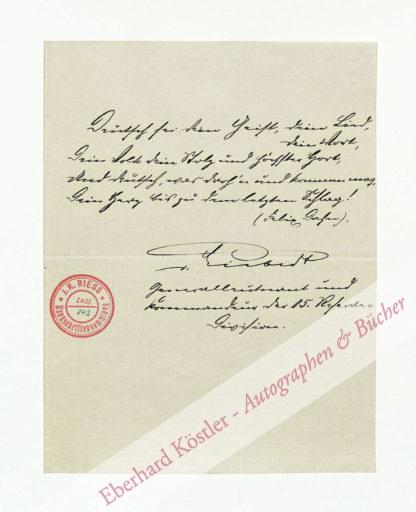 Deutsch sei dein Geist, dein Lied,
dein Wort,
Dein Volk dein Stolz und höchster Hort,
Und deutsch, was droh'n und kommen mag,
Dein Herz bis zu dem letzten Schlag!
(Felix Dahn).
v. Liebert
Generalleutnant und
Kommandeur der 15. Reserve-
Division.
J. K. RIESS
Handschriftensammlung
Eberhard Köstler - Autographen & Bücher